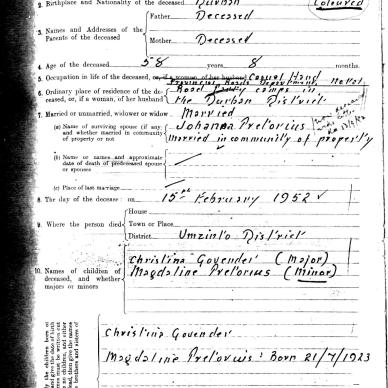 2. Birthplace and Nationality of the deceased Durban (Coloured)
Father Deceased
3. Names and Addresses of the Parents of the deceased
Mother Deceased
4. Age of the deceased 58 years 8 months.
5. Occupation in life of the deceased, or, if a woman, of her husband Casual Hand
Provincial Roads Department, Natal
6. Ordinary place of residence of the deceased, or, if a woman, of her husband Road Party camps in
the Durban District
7. Married or unmarried, widower or widow Married
(a) Name of surviving spouse (if any) and whether married in community of property or not Johanna Pretorius
Married in community of property
(b) Name or names and approximate date of death of predeceased spouse or spouses
(c) Place of last marriage
8. The day of the decease: on 15th February 1952
House
9. Where the person died Town or Place
District Umzinto District
Christina Govender (Major)
Magdaline Pretorius (Minor)
10. Names of children of deceased, and whether majors or minors
Christina Govender
Magdaline Pretorius: Born 21/7/1923